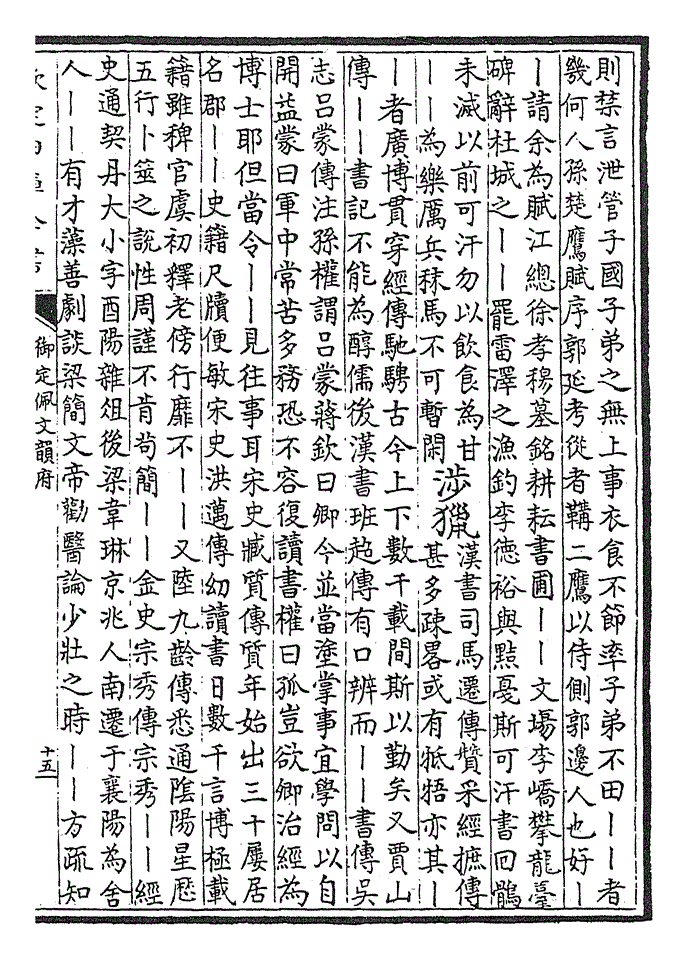 則禁言泄管子國子弟之無上事衣食不節率子弟不田｜｜者
幾何人孫楚鷹賦序郭延考從者韝二鷹以侍側郭邊人也好｜
｜請余為賦江總徐孝穆墓銘耕耘書圃｜｜文場李嶠攀龍臺
碑辭杜城之｜｜罷雷澤之漁釣李德裕與黠戛斯可汗書回鶻
未滅以前可汗勿以飲食為甘
｜｜為樂厲兵秣馬不可暫閑
涉獵
漢書司馬遷傳贊采經摭傳
甚多疎畧或有牴牾亦其｜
｜者廣博貫穿經傳馳騁古今上下數千載間斯以勤矣又賈山
傳｜｜書記不能為醇儒後漢書班超傳有口辨而｜｜書傳吳
志吕蒙傳注孫權謂吕蒙蔣欽曰卿今並當塗掌事宜學問以自
開益蒙曰軍中常苦多務恐不容復讀書權曰孤豈欲卿治經為
博士耶但當令｜｜見往事耳宋史臧質傳質年始出三十屢居
名郡｜｜史籍尺牘便敏宋史洪邁傳幼讀書日數千言博極載
籍雖稗官虞初釋老傍行靡不｜｜又陸九齡傳悉通陰陽星厯
五行卜筮之說性周謹不肯茍簡｜｜金史宗秀傳宗秀｜｜經
史通契丹大小字酉陽雜俎後梁韋琳京兆人南遷于襄陽為舍
人｜｜有才藻善劇談梁簡文帝勸醫論少壯之時｜｜方疏知
欽定四庫全書
御定佩文韻府
十五